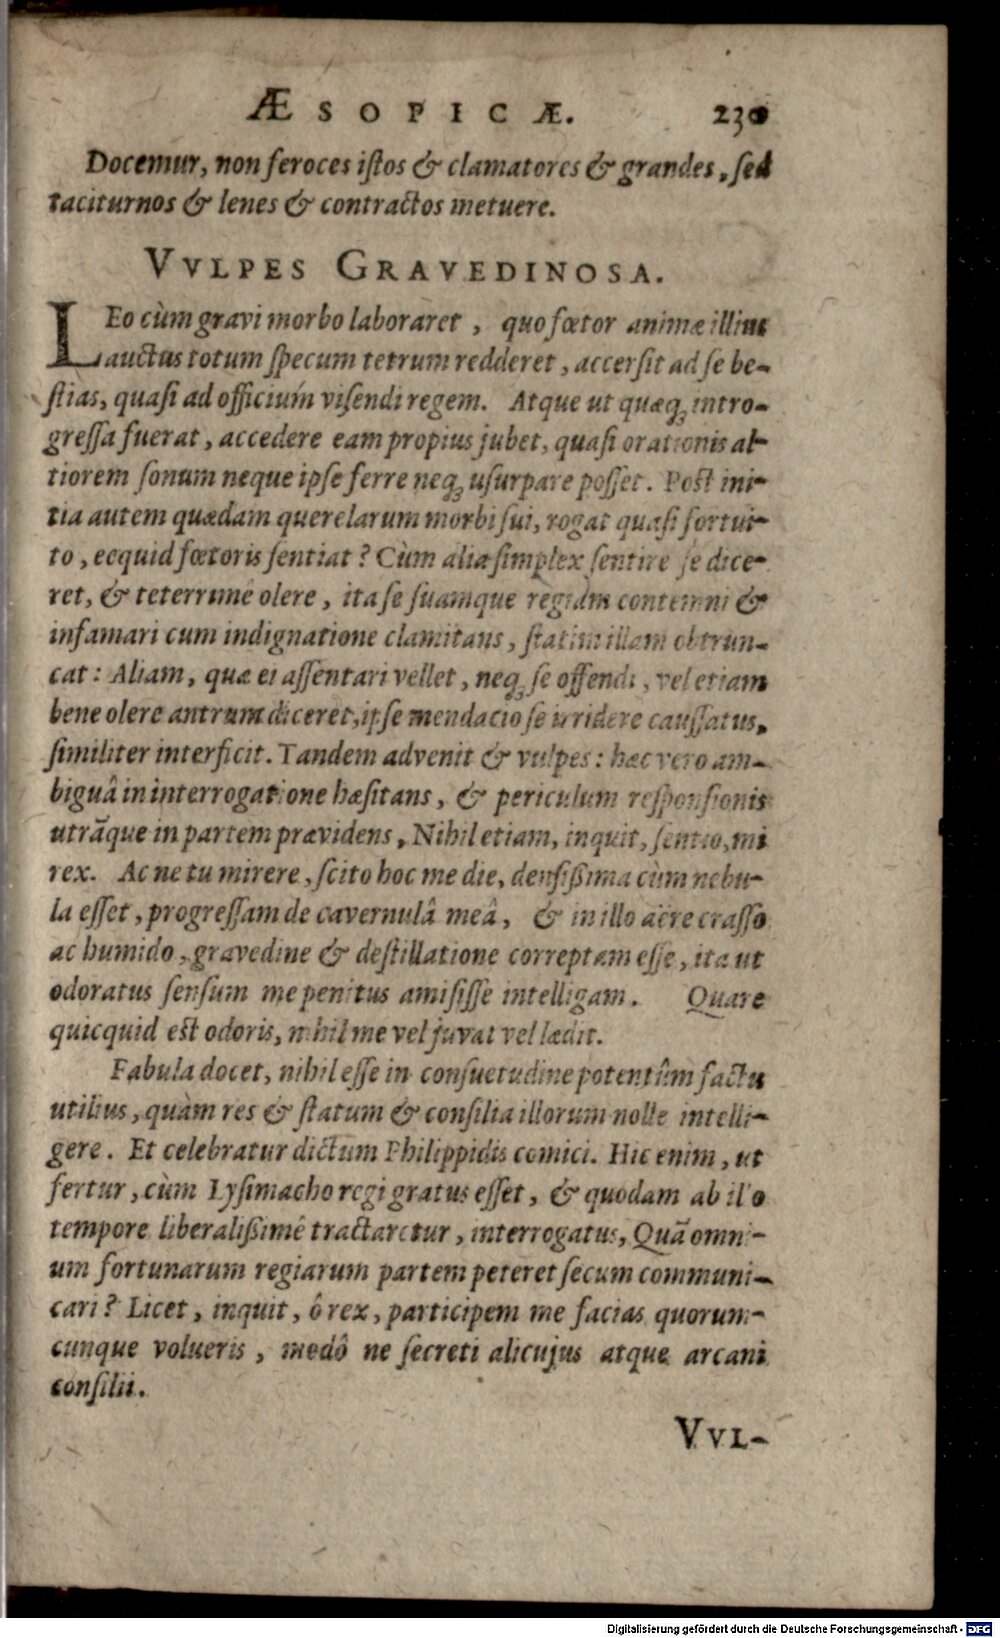 ÆSOPICÆ. 230
Docemur, non feroces istos & clamatores & grandes, sed
taciturnos & lenes & contractos metuere.
VVLPES GRAVEDINOSA.
LEo cùm gravi morbo laboraret, quo fœtor animæ illius
auctus totum specum tetrum redderet, accersit ad se be-
stias, quasi ad officiúm visendi regem. Atque ut quæq; intro-
gressa fuerat, accedere eam propius jubet, quasi orationis al-
tiorem sonum neque ipse ferre neq; usurpare posset. Post ini-
tia autem quædam querelarum morbi sui, rogat quasi fortui-
to, ecquid fœtoris sentiat? Cùm alia simplex sentire se dice-
ret, & teterrimê olere, ita se suamque regiam contemni &
infamari cum indignatione clamitans, statim illam obtrun-
cat: Aliam, quæ ei assentari vellet, neq; se offendi, vel etiam
bene olere antrum diceret, ipse mendacio se irridere caussatus,
similiter interficit. Tandem advenit & vulpes: hæc vero am-
biguâ in interrogatione hæsitans, & periculum responsionis
utrãque in partem prævidens, Nihil etiam, inquit, sentio, mi
rex. Ac ne tu mirere, scito hoc me die, densißima cùm nebu-
la esset, progressam de cavernulâ meâ, & in illo aëre crasso
ac humido, gravedine & destillatione correptam esse, ita ut
odoratus sensum me penitus amisisse intelligam. Quare
quicquid est odoris, nihil me vel juvat vel lædit.
Fabula docet, nihil esse in consuetudine potentûm factu
utilius, quàm res & statum & consilia illorum nolle intelli-
gere. Et celebratur dictum Philippidis comici. Hic enim, ut
fertur, cùm Lysimacho regi gratus esset, & quodam ab illo
tempore liberalißimê tractaretur, interrogatus, Quã omni-
um fortunarum regiarum partem peteret secum communi-
cari? Licet, inquit, ô rex, participem me facias quorum-
cunque volueris, modô ne secreti alicujus atque arcani
consilii.
VVL-
Digitalisierung gefördert durch die Deutsche Forschungsgemeinschaft - DFG